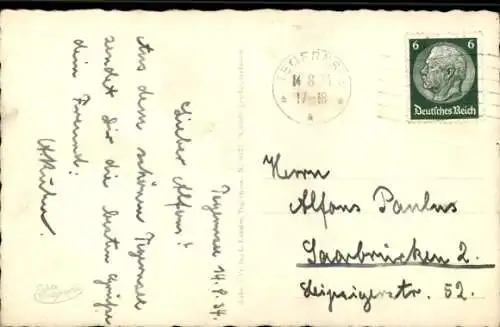 Tegernsee 14.8.34.
Lieber Alfons!
Aus dem schönen Tegernsee
sendet Dir die besten Grüße
dein Freund:
TEGERNSEE
14.8.34
17-18
6 6
Deutsches Reich
Herrn
Alfons Paulus
Saarbrücken 2.
Leipzigerstr. 52.